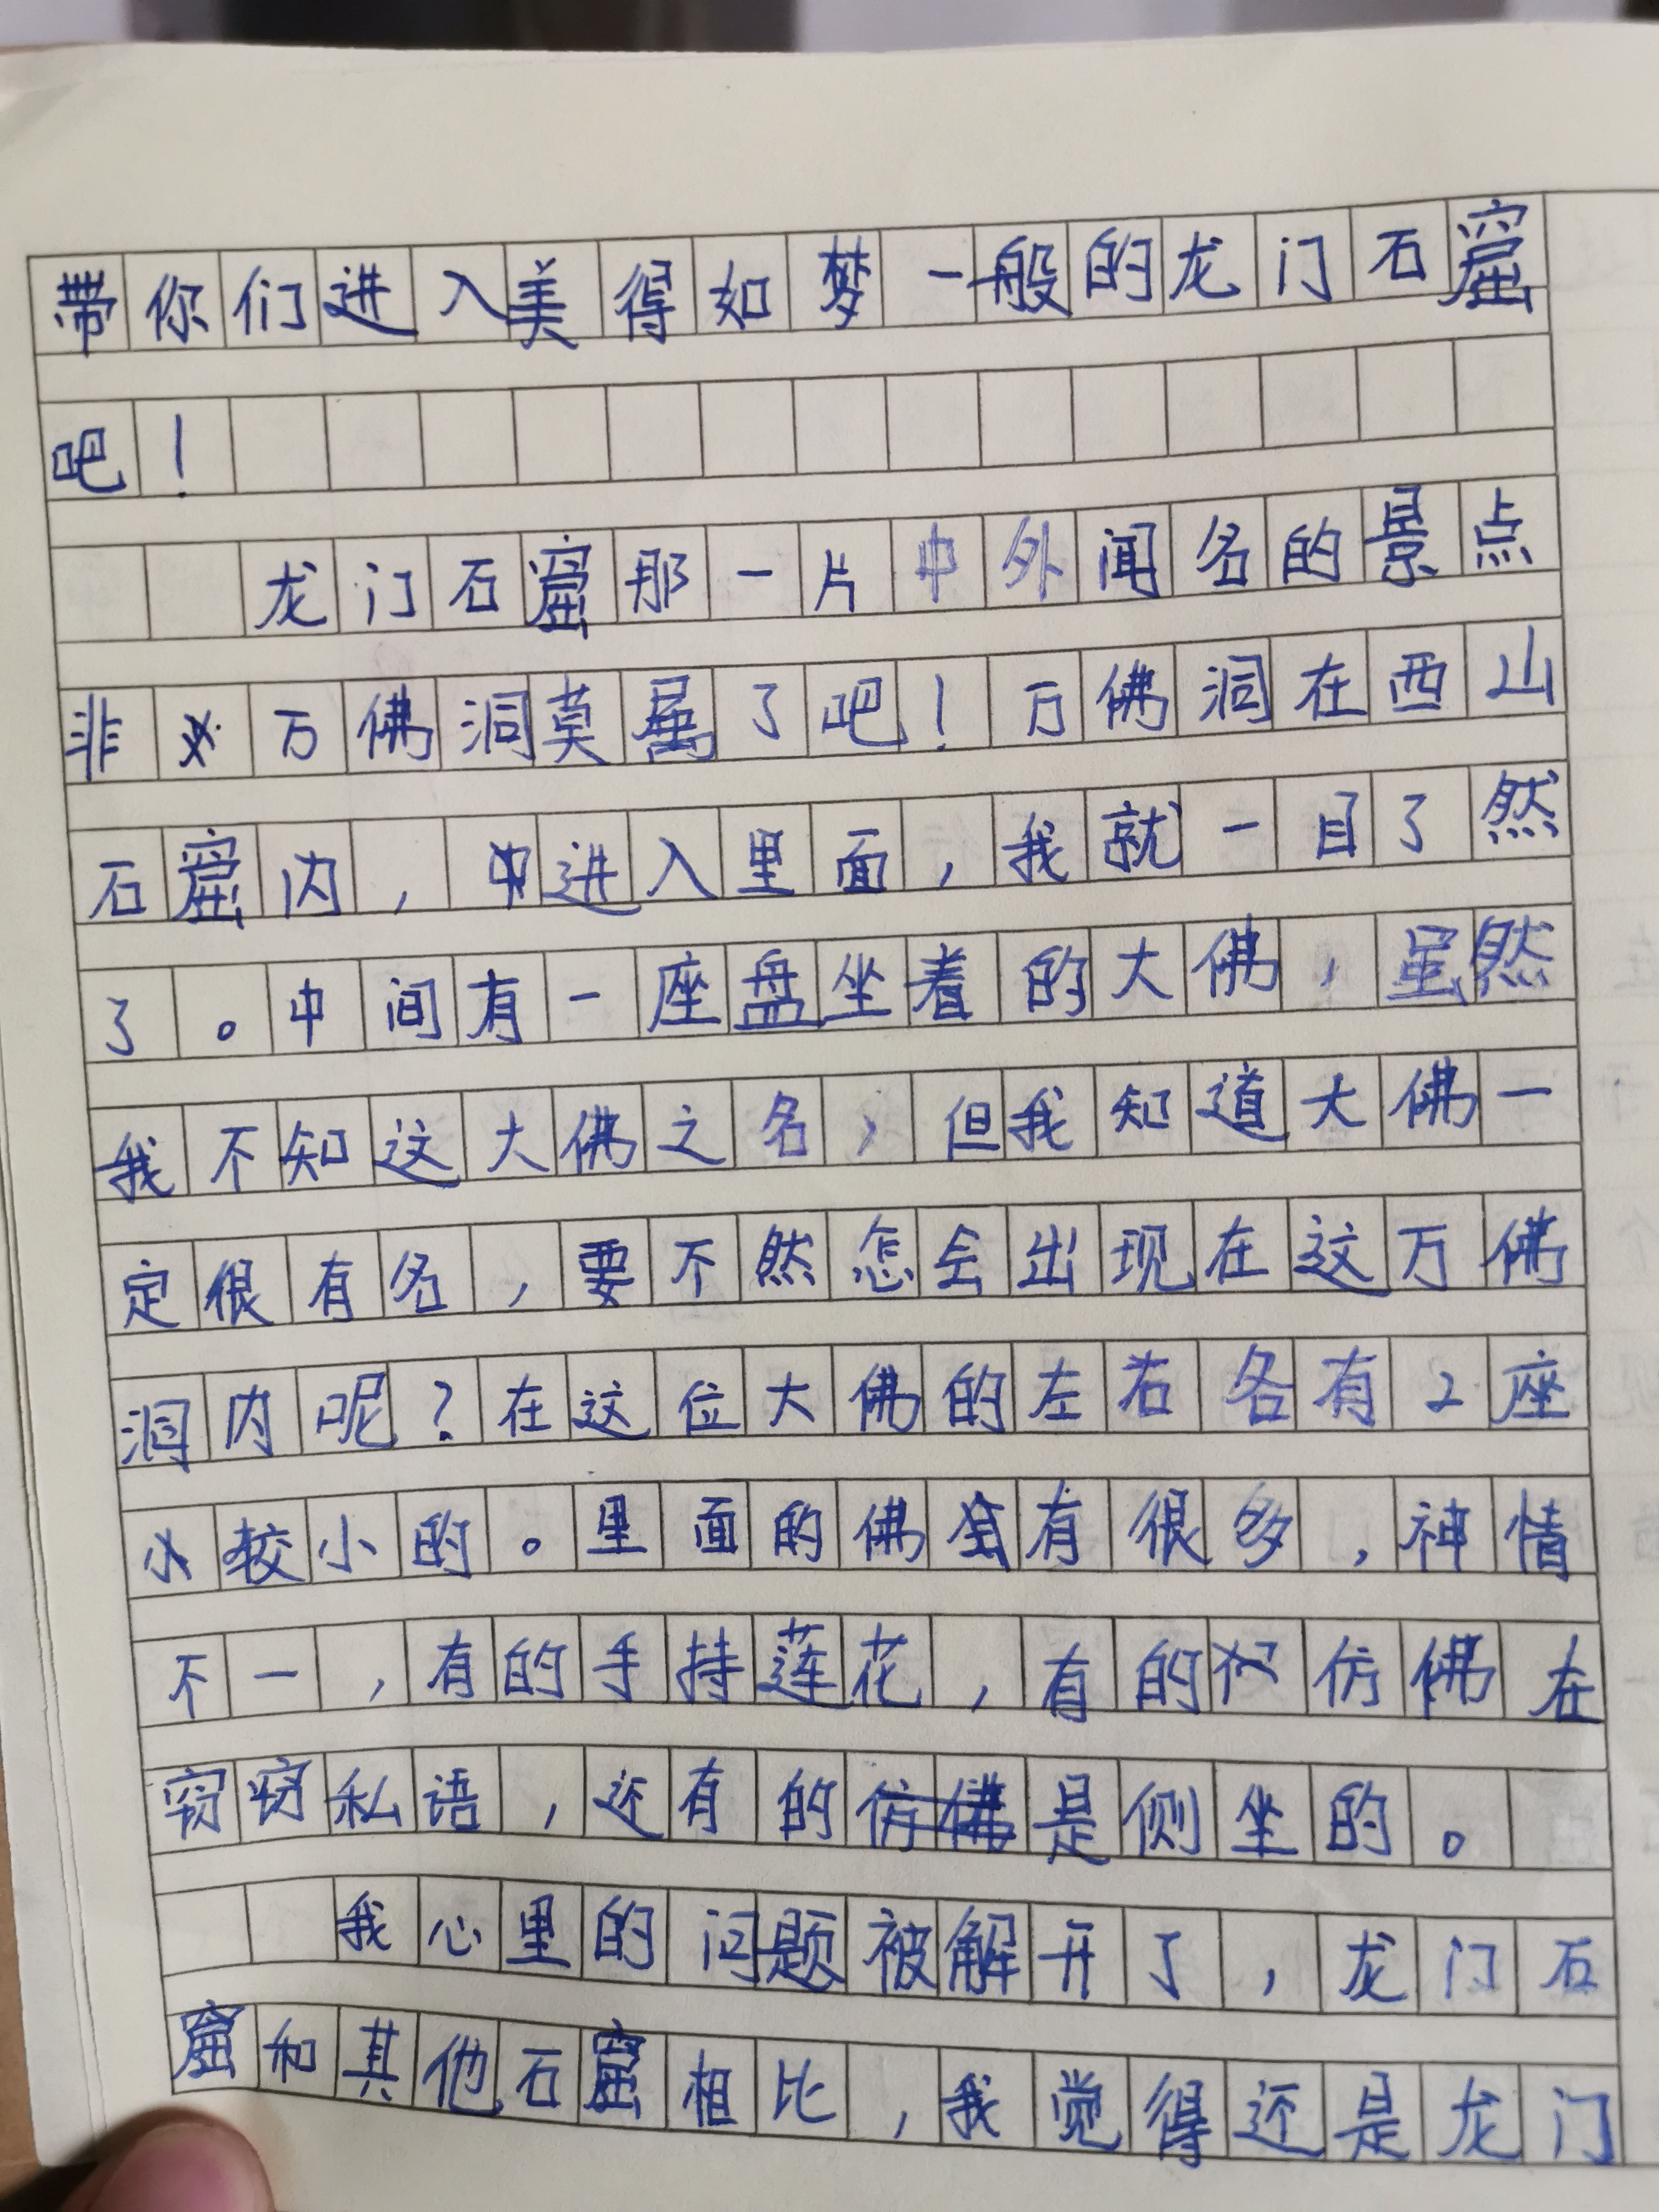 带你们进入美得如梦一般的龙门石窟
吧！
龙门石窟那一片中外闻名的景点
非万佛洞莫属了吧！万佛洞在西山
石窟内，进入里面，我就一目了然
了。中间有一座盘坐着的大佛，虽然
我不知这大佛之名，但我知道大佛一
定很有名，要不然怎会出现在这万佛
洞内呢？在这位大佛的左右各有2座
较小的。里面的佛有很多，神情
不一，有的手持莲花，有的仿佛在
窃窃私语，还有的是侧坐的。
我心里的问题被解开了，龙门石
窟和其他石窟相比，我觉得还是龙门